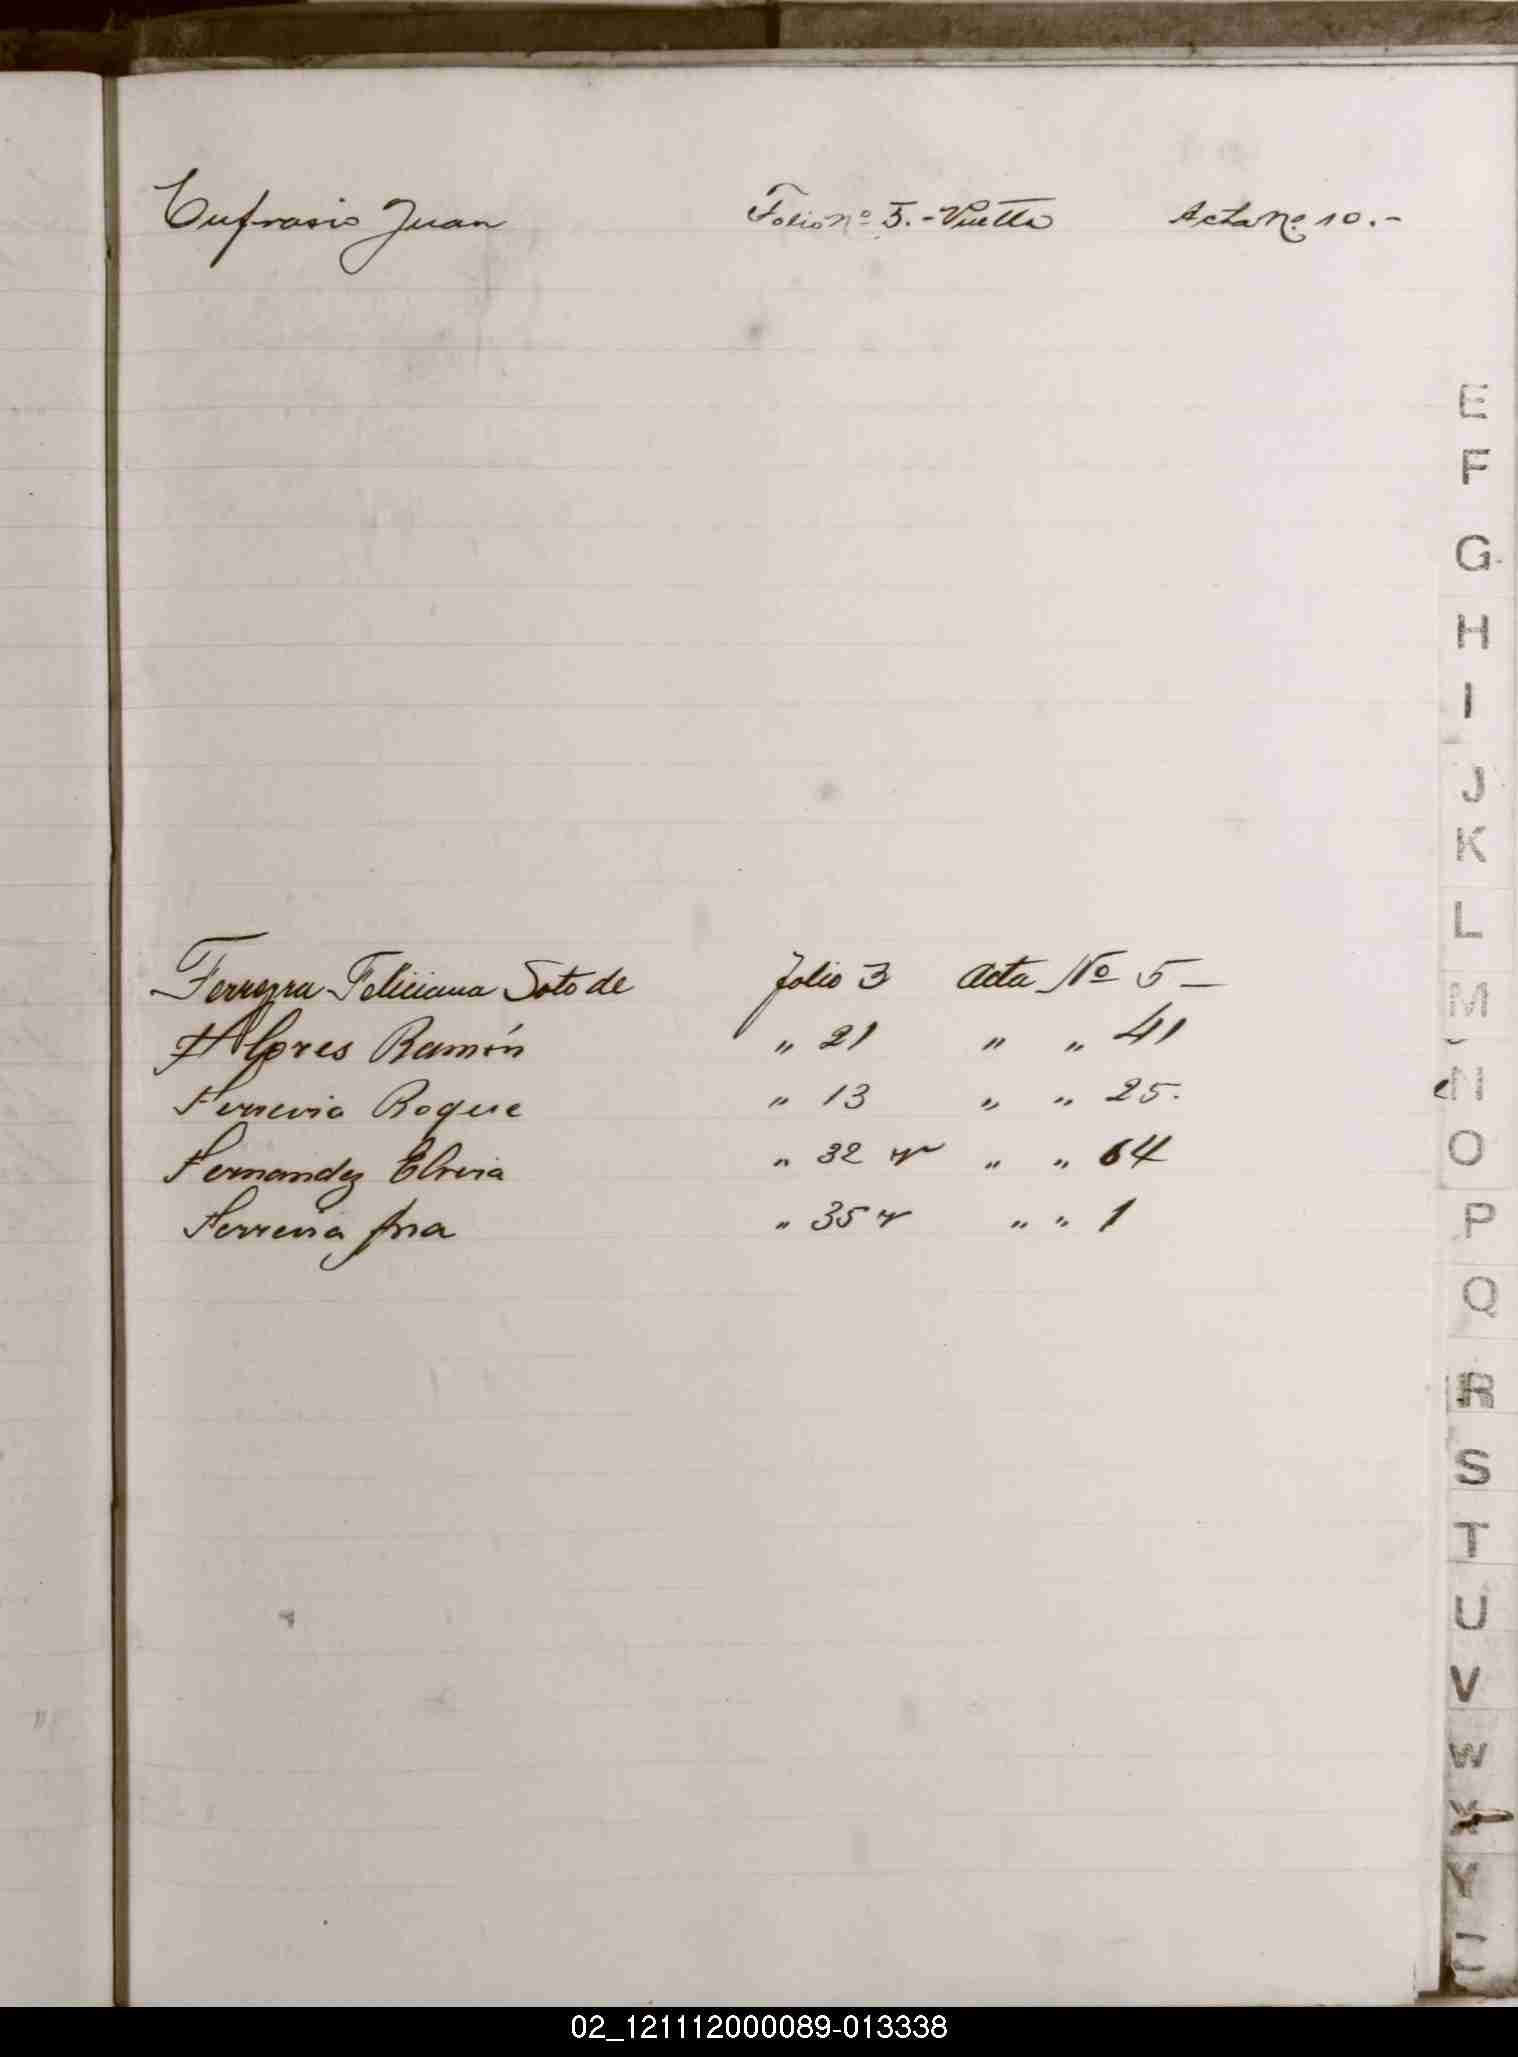 Eufrasio Juan Folio Nº 5.- Vuelta Acta No. 10.-
E
F
G
H
I
J
K
L
Ferreyra Feliciana Soto de folio 3 Acta Nº 5 —
M
Flores Ramón " 21 " " 41
N
Ferreira Roque " 13 " " 25.
O
Fernandez Elvira " 32 v " " 64
P
Ferreira " 35 v " " 1
Q
R
S
T
U
V
W
X
Y
02_121112000089-013338